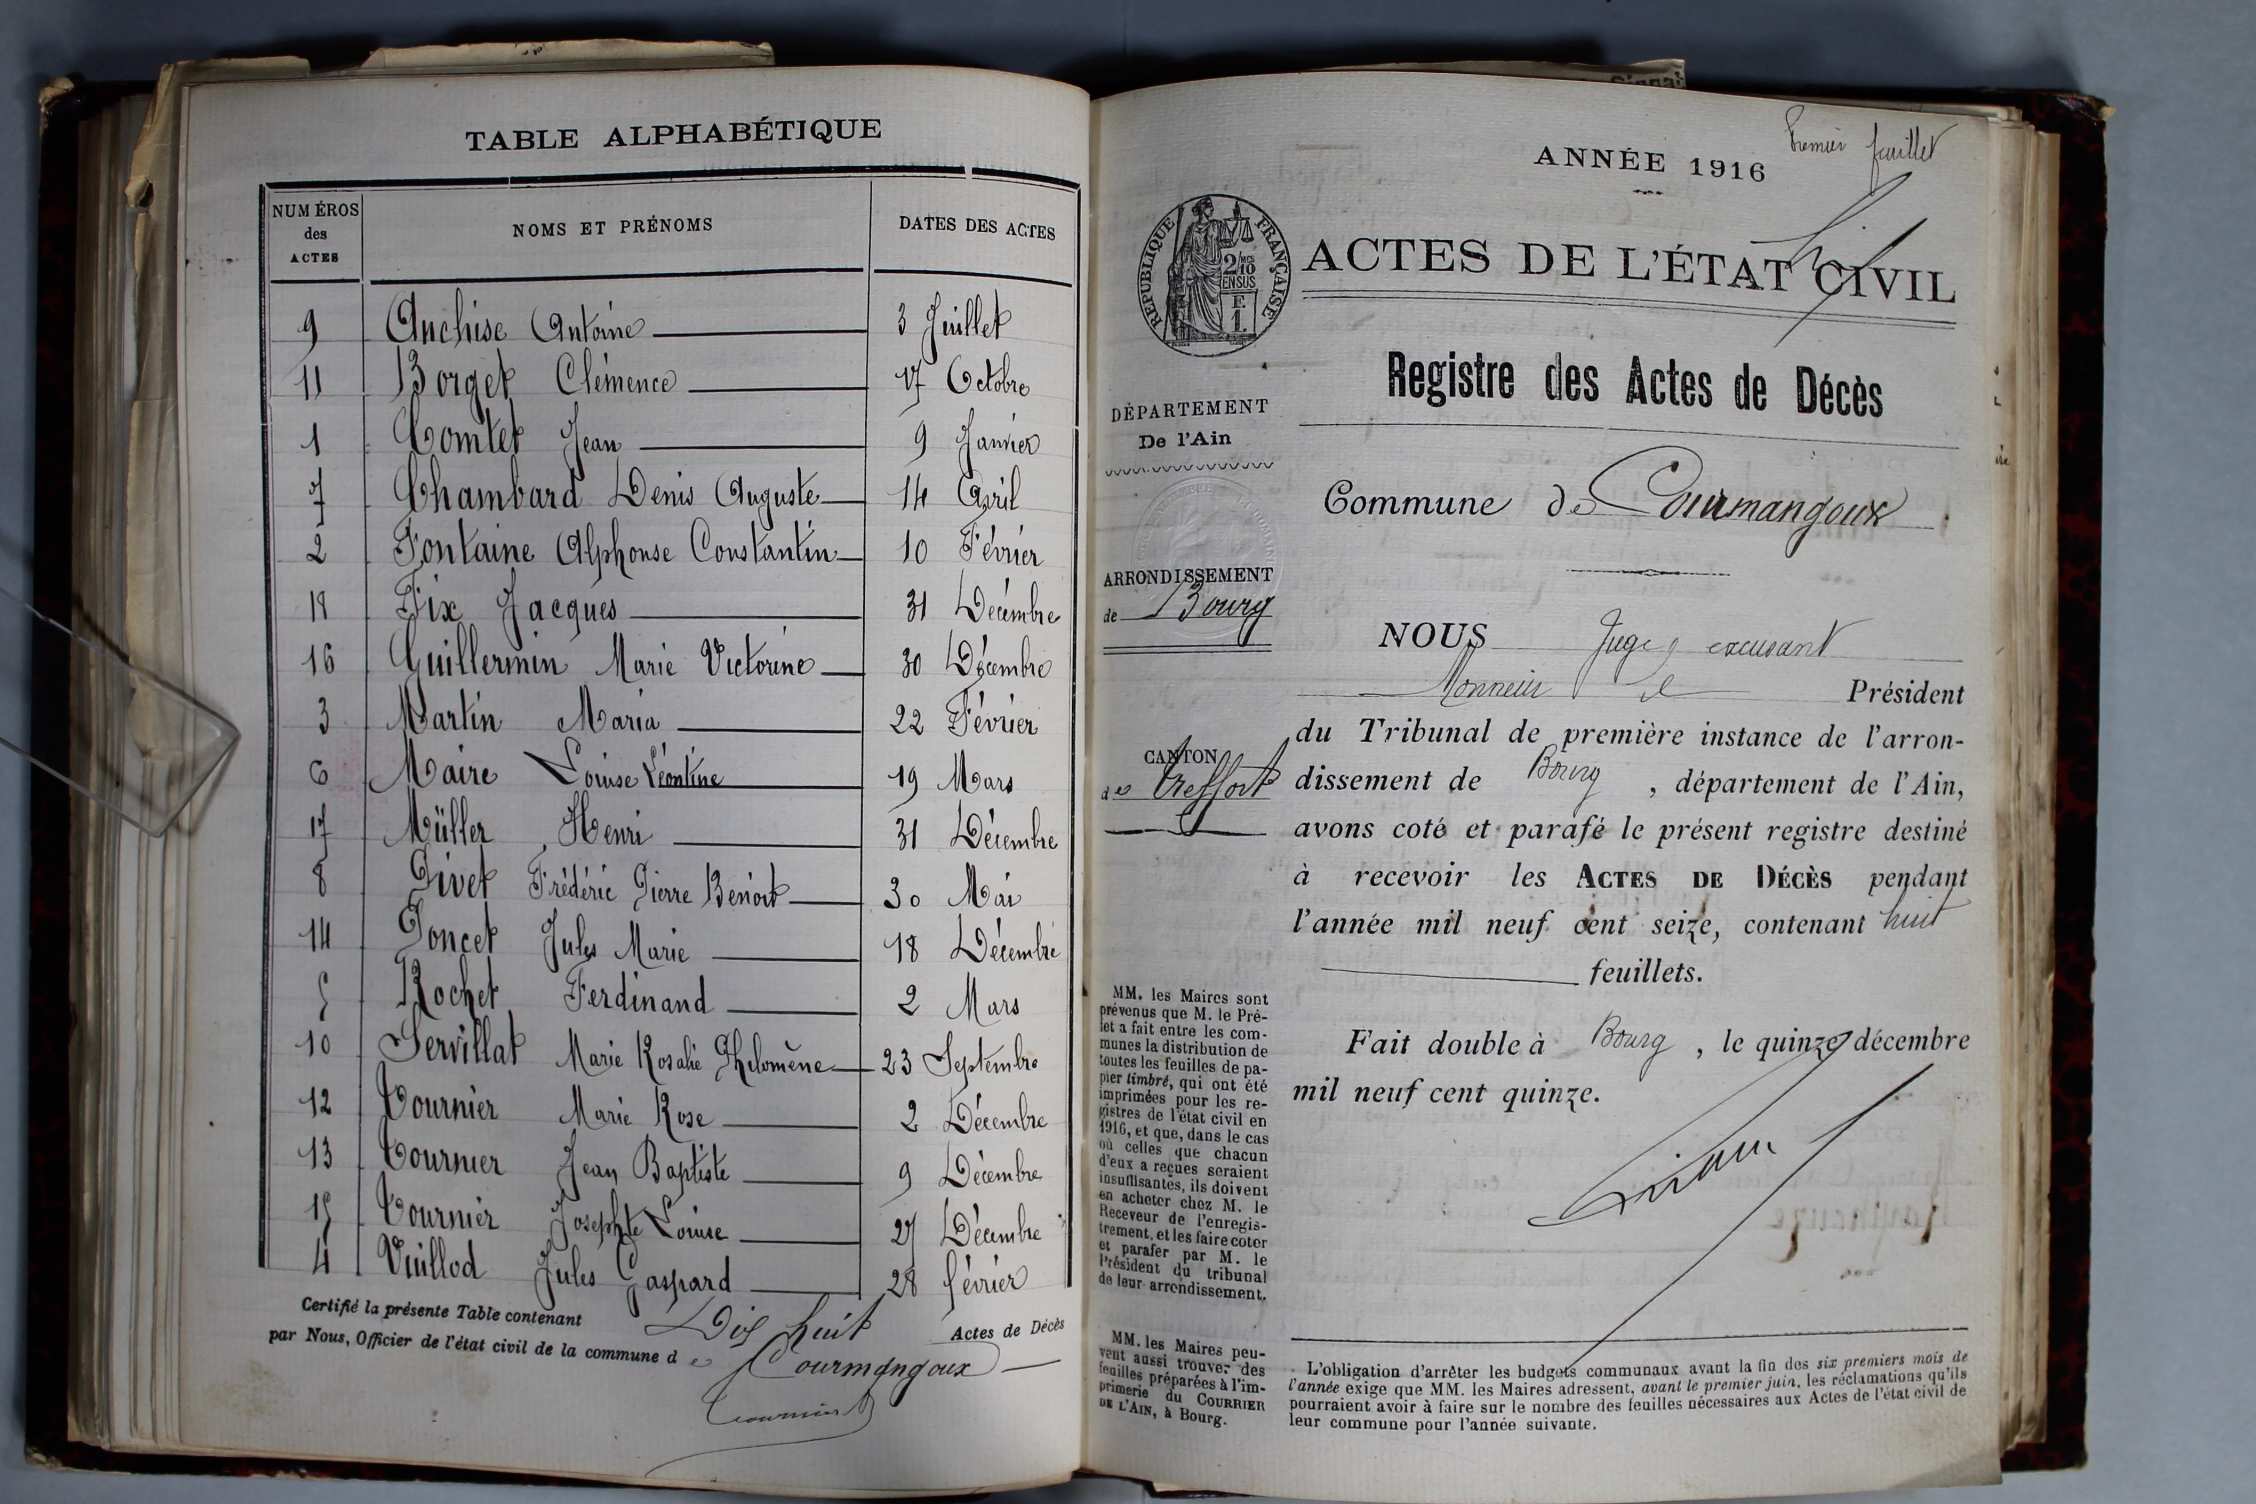 TABLE ALPHABÉTIQUE
NUMÉROS
des
ACTES
NOMS ET PRÉNOMS
DATES DES ACTES
9 Anchise Antoine 3 Juillet
11 Borget Clémence 17 Octobre
1 Comtet Jean 9 Janvier
7 Chambard Denis Auguste 14 Avril
2 Fontaine Alphonse Constantin 10 Février
18 Fix Jacques 31 Décembre
16 Guillermin Marie Victorine 30 Décembre
3 Martin Maria 22 Février
6 Maire Louise Léontine 19 Mars
17 Müller Henri 31 Décembre
8 Pivet Frédéric Pierre Benoit 30 Mai
14 Poncet Jules Marie 18 Décembre
5 Rochet Ferdinand 2 Mars
10 Servillat Marie Rosalie Philomène 23 Septembre
12 Tournier Marie Rose 2 Décembre
13 Tournier Jean Baptiste 9 Décembre
15 Tournier Josephte Louise 27 Décembre
4 Vuillod Jules Gaspard 28 février
Certifié la présente Table contenant Dix huit Actes de Décès
par Nous, Officier de l'état civil de la commune de Courmangoux
Tournier
Premier feuillet
ANNÉE 1916
RÉPUBLIQUE FRANÇAISE
2/10
EN SUS
ACTES DE L'ÉTAT CIVIL
Registre des Actes de Décès
DÉPARTEMENT
De l'Ain
Commune de Courmangoux
ARRONDISSEMENT
de Bourg
CANTON
de Treffort
NOUS Juge, excusant
Monsieur le Président
du Tribunal de première instance de l'arron-
dissement de Bourg, département de l'Ain,
avons coté et parafé le présent registre destiné
à recevoir les ACTES DE DÉCÈS pendant
l'année mil neuf cent seize, contenant huit
feuillets.
Fait double à Bourg, le quinze décembre
mil neuf cent quinze.
MM. les Maires sont
prévenus que M. le Pré-
fet a fait entre les com-
munes la distribution de
toutes les feuilles de pa-
pier timbré, qui ont été
imprimées pour les re-
gistres de l'état civil en
1916, et que, dans le cas
où celles que chacun
d'eux a reçues seraient
insuffisantes, ils doivent
en acheter chez M. le
Receveur de l'enregis-
trement, et les faire coter
et parafer par M. le
Président du tribunal
de leur arrondissement.
MM. les Maires peu-
vent aussi trouver des
feuilles préparées à l'im-
primerie du COURRIER
DE L'AIN, à Bourg.
L'obligation d'arrêter les budgets communaux avant la fin des six premiers mois de
l'année exige que MM. les Maires adressent, avant le premier juin, les réclamations qu'ils
pourraient avoir à faire sur le nombre des feuilles nécessaires aux Actes de l'état civil de
leur commune pour l'année suivante.